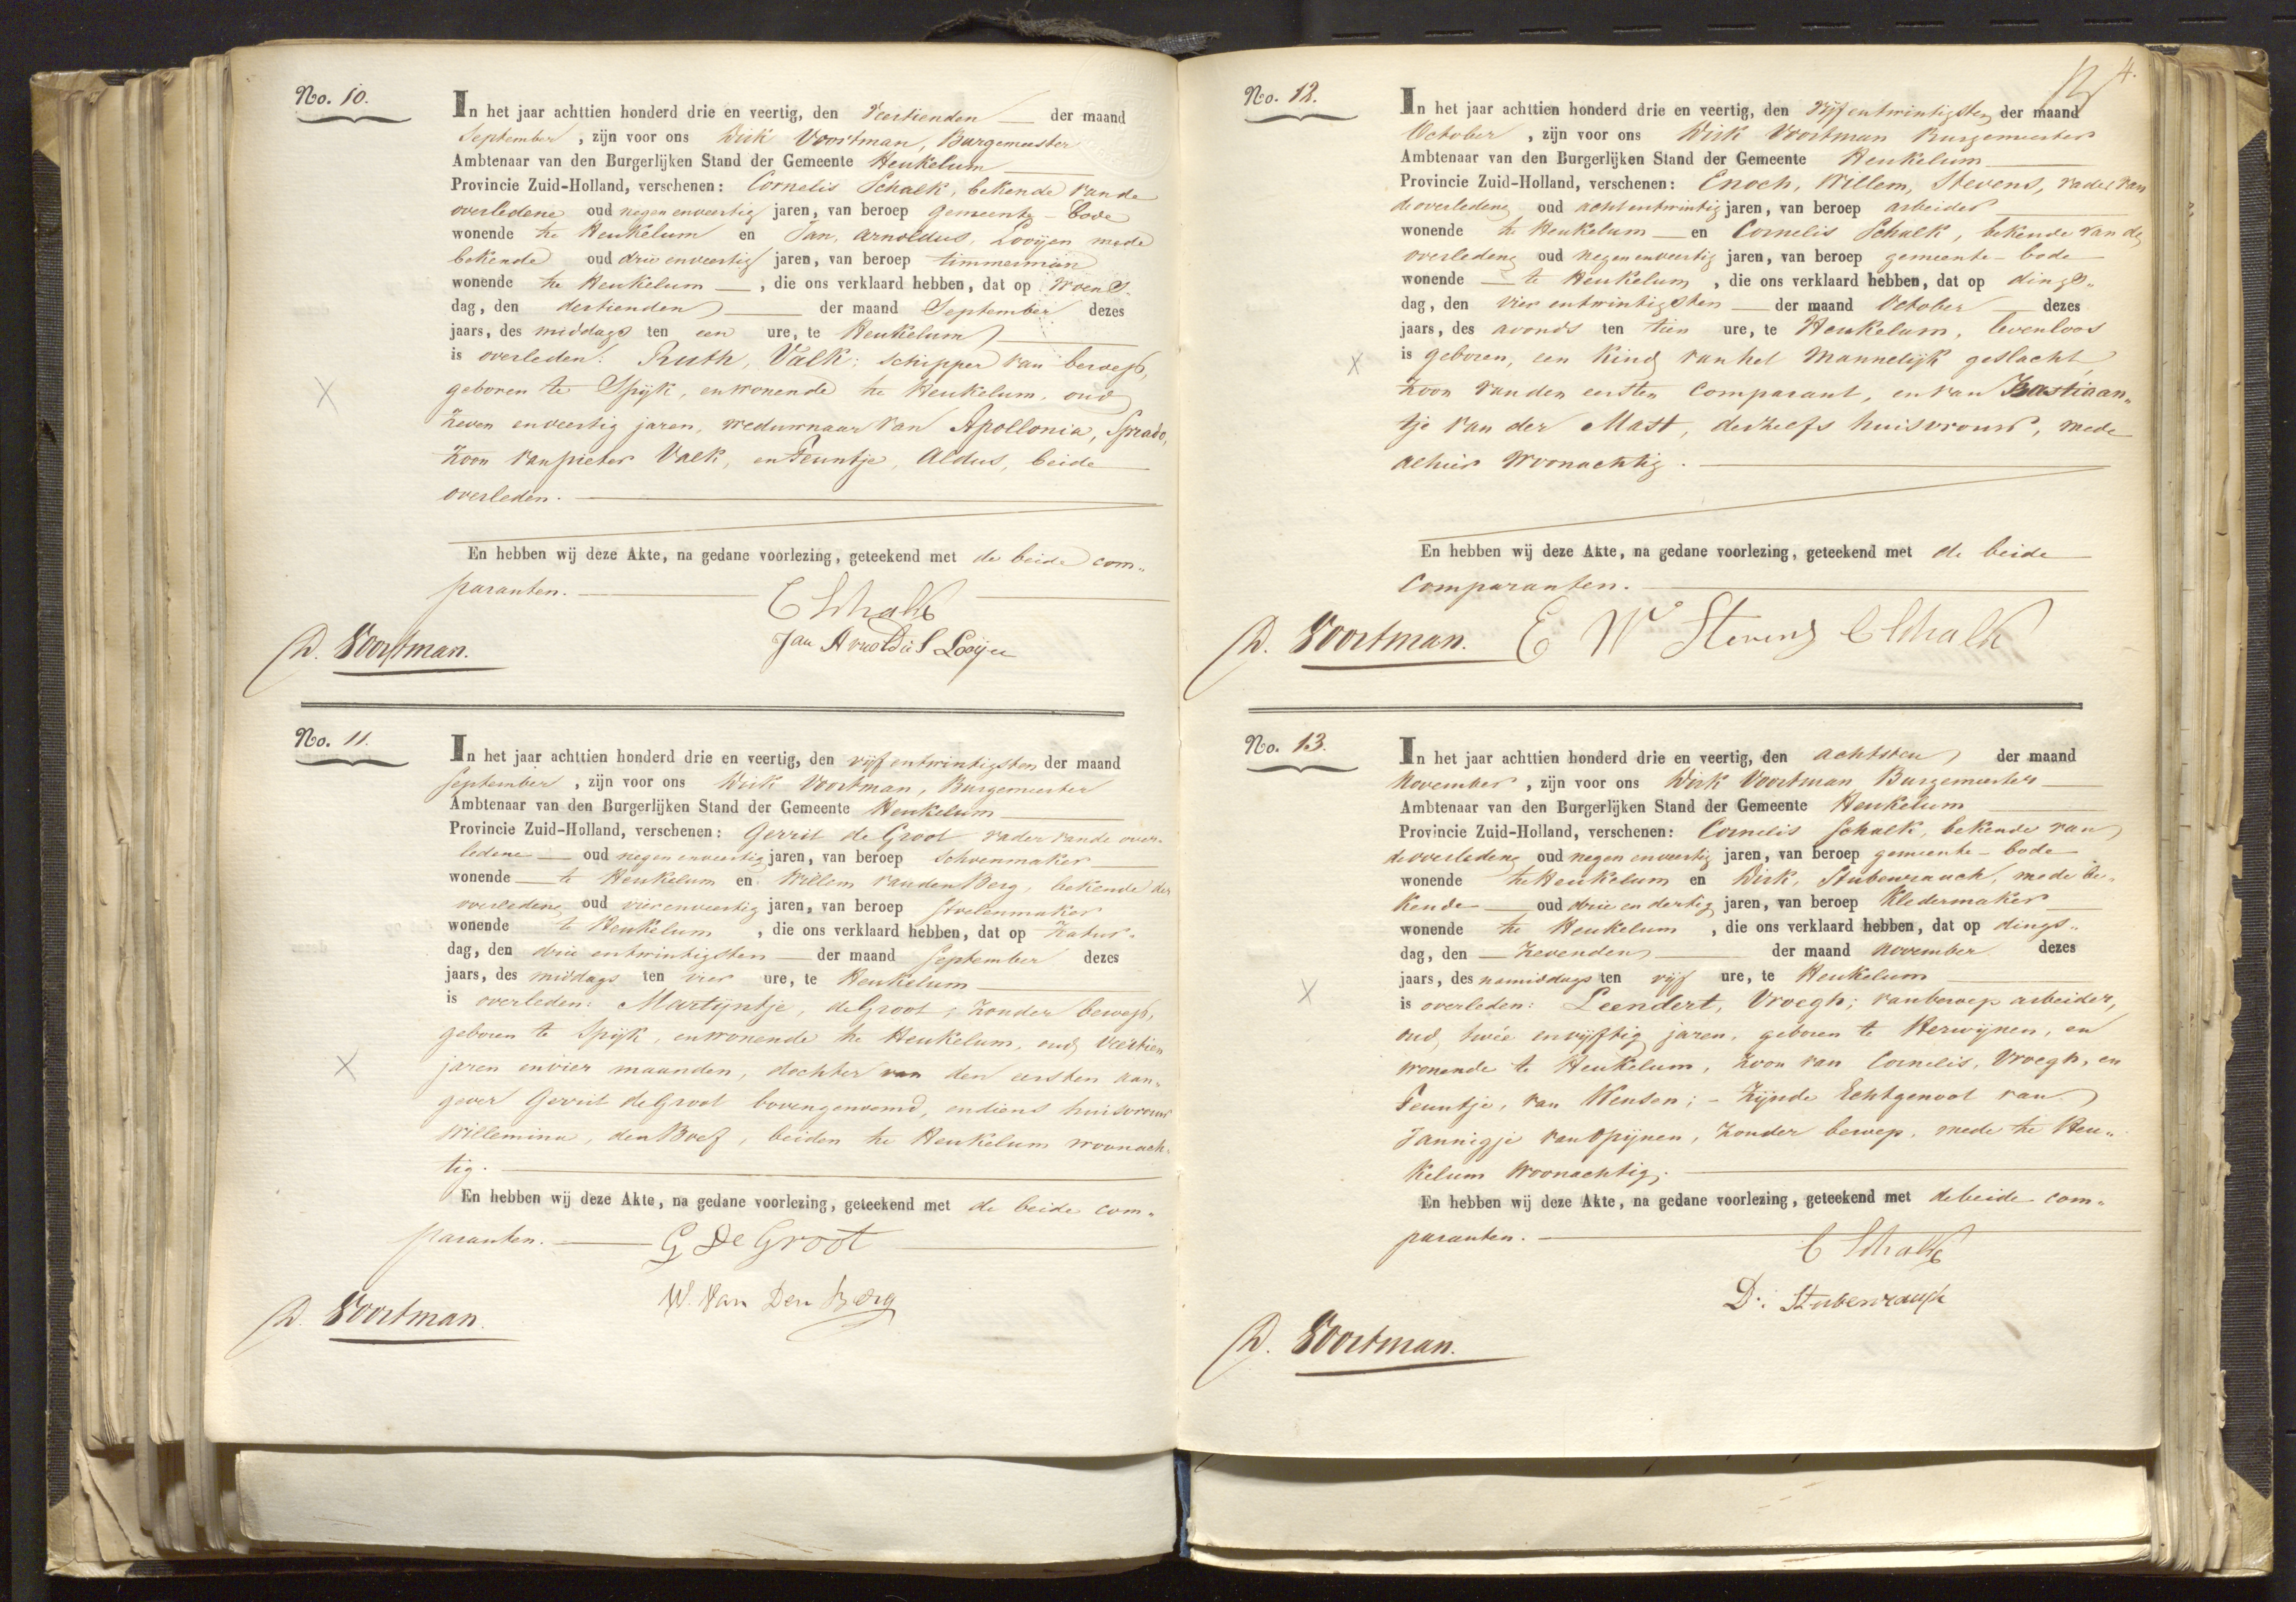 No. 10.
In het jaar achttien honderd drie en veertig, den Veertienden der maand
September, zijn voor ons Dirk Voortman, Burgemeester
Ambtenaar van den Burgerlijken Stand der Gemeente Heukelum
Provincie Zuid-Holland, verschenen: Cornelis Schalk, bekende van de
overledene oud negen en veertig jaren, van beroep gemeente-bode
wonende te Heukelum en Jan, Arnoldus, Looijen mede
bekende oud drie en veertig jaren, van beroep timmerman
wonende te Heukelum, die ons verklaard hebben, dat op Woens-
dag, den dertienden der maand September dezes
jaars, des middags ten een ure, te Heukelum
is overleden: Ruth, Valk; schipper van beroep,
geboren te Spijk, en wonende te Heukelum, oud
Zeven en veertig jaren, weduwnaar van Apollonia, Sprado,
Zoon van pieter Valk, en Teuntje, Aldus, beide
overleden.
En hebben wij deze Akte, na gedane voorlezing, geteekend met de beide com„
paranten.
C Schalk
Jan Arnoldus Looijen
D. Voortman.
No. 11.
In het jaar achttien honderd drie en veertig, den vijf en twintigsten der maand
September, zijn voor ons Dirk Voortman, Burgemeester
Ambtenaar van den Burgerlijken Stand der Gemeente Heukelum
Provincie Zuid-Holland, verschenen: Gerrit de Groot vader van de over-
ledene oud negen en veertig jaren, van beroep Schoenmaker
wonende te Heukelum en Willem van den Berg, bekende der
overledene oud vier en veertig jaren, van beroep Stoelenmaker
wonende te Heukelum, die ons verklaard hebben, dat op Zatur-
dag, den drie en twintigsten der maand September dezes
jaars, des middags ten vier ure, te Heukelum
is overleden: Martijntje, de Groot; zonder beroep,
geboren te Spijk, en wonende te Heukelum, oud Veertien
jaren en vier maanden, dochter van den eersten aan-
gever Gerrit de Groot bovengenoemd, en diens huisvrouw
Willemina, den Boef, beiden te Heukelum woonach-
tig.
En hebben wij deze Akte, na gedane voorlezing, geteekend met de beide com„
paranten.
G De Groot
W. Van Den Berg
D. Voortman.
4.
No. 12.
In het jaar achttien honderd drie en veertig, den vijf en twintigsten der maand
October, zijn voor ons Dirk Voortman Burgemeester
Ambtenaar van den Burgerlijken Stand der Gemeente Heukelum
Provincie Zuid-Holland, verschenen: Enoch, Willem, Stevens, vader van
de overledene oud acht en twintig jaren, van beroep arbeider
wonende te Heukelum en Cornelis Schalk, bekende van de
overledene oud negen en veertig jaren, van beroep gemeente-bode
wonende te Heukelum, die ons verklaard hebben, dat op dings„
dag, den vier en twintigsten der maand October dezes
jaars, des avonds ten tien ure, te Heukelum, levenloos
is geboren, een Kind van het Mannelijk geslacht,
Zoon van den eersten Comparant, en van Bastiaan„
tje van der Mast, deszelfs huisvrouw, mede
alhier Woonachtig.
En hebben wij deze Akte, na gedane voorlezing, geteekend met de beide
Comparanten.
D. Voortman. E W Stevens C Schalk
No. 13.
In het jaar achttien honderd drie en veertig, den achtsten der maand
November, zijn voor ons Dirk Voortman Burgemeester
Ambtenaar van den Burgerlijken Stand der Gemeente Heukelum
Provincie Zuid-Holland, verschenen: Cornelis Schalk, bekende van
de overledene oud negen en veertig jaren, van beroep gemeente-bode
wonende te Heukelum en Dirk, Stubenrauch, mede be-
kende oud drie en dertig jaren, van beroep Kledermaker
wonende te Heukelum, die ons verklaard hebben, dat op dings„
dag, den Zevenden der maand November dezes
jaars, des namiddags ten vijf ure, te Heukelum
is overleden: Leendert, Vroegh; van beroep arbeider,
oud twée en vijftig jaren, geboren te Herwijnen, en
wonende te Heukelum, Zoon van Cornelis, Vroegh, en
Teuntje, van Wensen; - Zijnde Echtgenoot van
Jannigje van Opijnen, Zonder beroep, mede te Heu„
kelum Woonachtig.
En hebben wij deze Akte, na gedane voorlezing, geteekend met de beide com„
paranten.
C Schalk
D. Stubenrauch
D. Voortman.